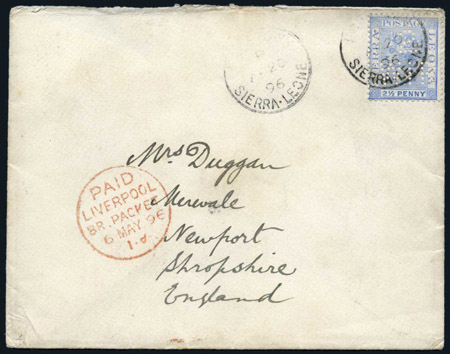 SIERRA-LEONE
96
POSTAGE
SIERRA LEONE
2½ PENNY
96
SIERRA-LEONE
Mrs Duggan
Merevale
Newport
Shropshire
England
PAID
LIVERPOOL
BR. PACKET
6 MAY 96